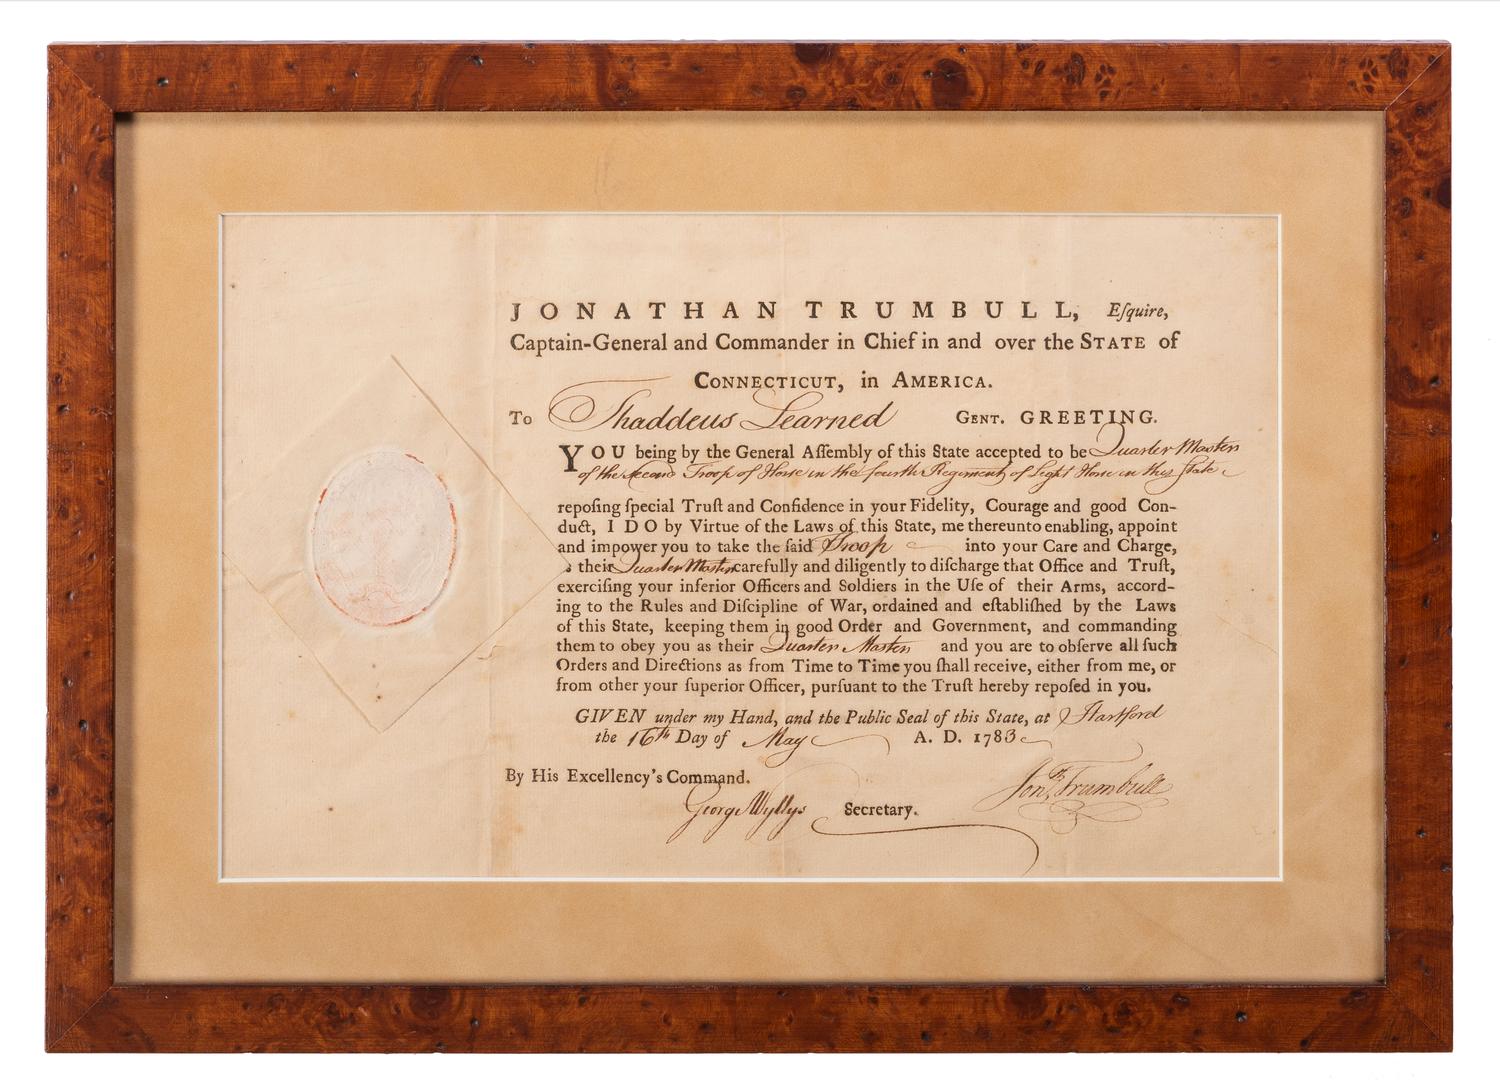 JONATHAN TRUMBULL, Eſquire,
Captain-General and Commander in Chief in and over the STATE of
CONNECTICUT, in AMERICA.
To Thaddeus Learned GENT. GREETING.
YOU being by the General Aſſembly of this State accepted to be Quarter Master
of the second Troop of Horse in the fourth Regiment of Light Horse in this State
repoſing ſpecial Truſt and Confidence in your Fidelity, Courage and good Con-
duct, I DO by Virtue of the Laws of this State, me thereunto enabling, appoint
and impower you to take the ſaid Troop into your Care and Charge,
s their Quarter Master carefully and diligently to diſcharge that Office and Truſt,
exerciſing your inferior Officers and Soldiers in the Uſe of their Arms, accord-
ing to the Rules and Diſcipline of War, ordained and eſtabliſhed by the Laws
of this State, keeping them in good Order and Government, and commanding
them to obey you as their Quarter Master and you are to obſerve all ſuch
Orders and Directions as from Time to Time you ſhall receive, either from me, or
from other your ſuperior Officer, purſuant to the Truſt hereby repoſed in you.
GIVEN under my Hand, and the Public Seal of this State, at Hartford
the 16th Day of May A. D. 1783
By His Excellency's Command.
Jonth Trumbull
George Wyllys Secretary.